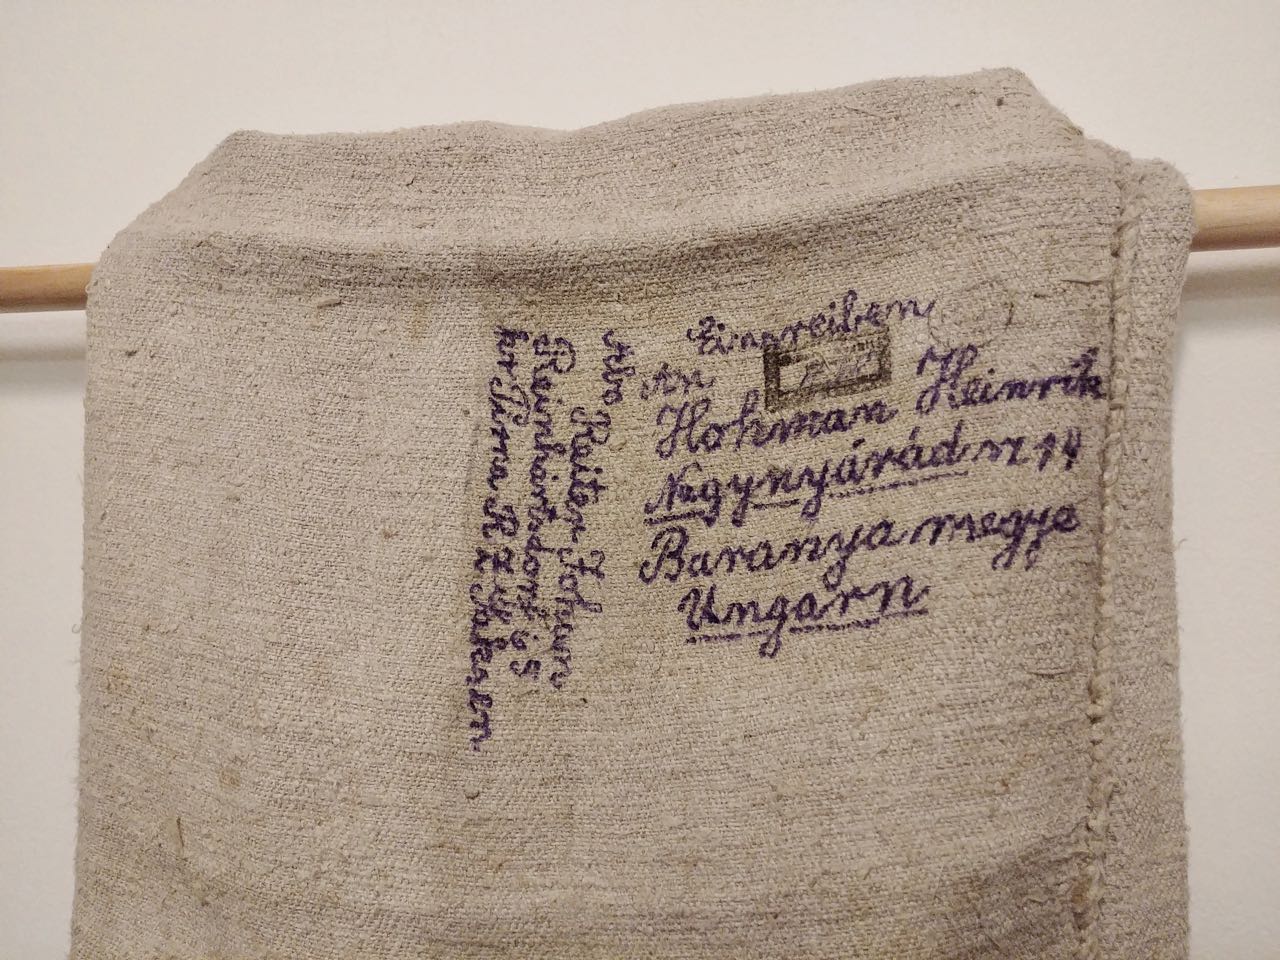 Einsreiben
An
Hohman Heinrik
Nagynyárád n 14
Baranya megye
Ungarn
Abs Reiter Johan
Reinhartsdorf 65
kr Pirna